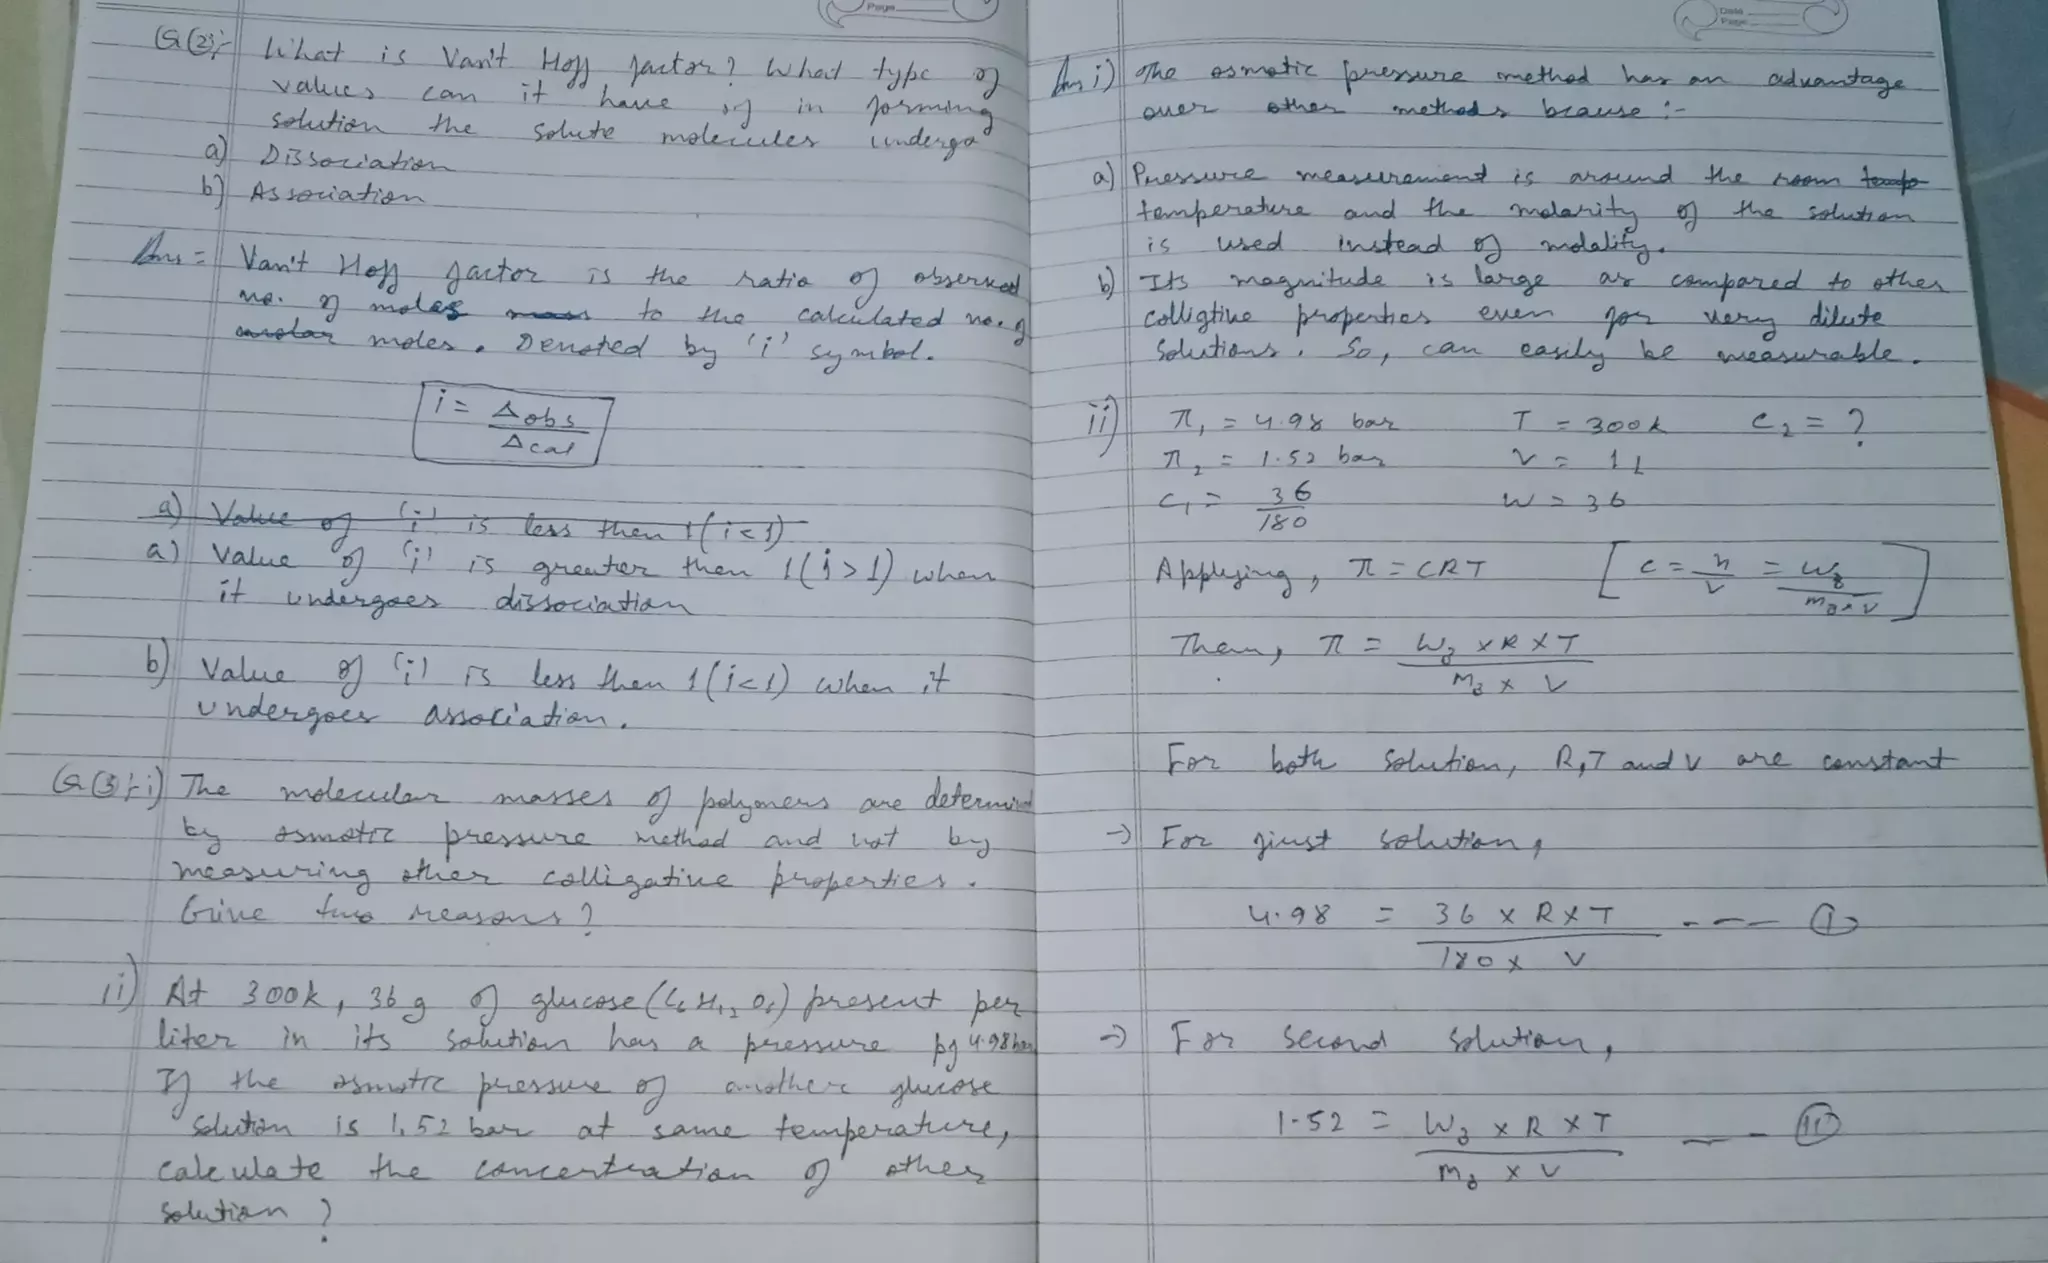 Page
Q(2):- What is Van't Hoff factor? What type of
values can it have if in forming
solution the solute molecules undergo
a) Dissociation
b) Association
Ans = Van't Hoff factor is the ratio of observed
no. of moles mass to the calculated no. of
molar moles. Denoted by 'i' symbol.
i = Δobs
Δcal
a) Value of 'i' is less then 1 (i<1)
a) Value of 'i' is greater then 1 (i>1) when
it undergoes dissociation
b) Value of 'i' is less then 1 (i<1) when it
undergoes association.
Q(3):- i) The molecular masses of polymers are determined
by osmotic pressure method and not by
measuring other colligative properties.
Give two reasons?
ii) At 300k, 36g of glucose (C6 H12 O6) present per
liter in its solution has a pressure pf 4.98 bar
If the osmotic pressure of another glucose
solution is 1.52 bar at same temperature,
calculate the concentration of other
solution?
Date
Page
Ans i) The osmotic pressure method has an advantage
over other methods because :-
a) Pressure measurement is around the room tempe
temperature and the molarity of the solution
is used instead of molality.
b) Its magnitude is large as compared to other
colligtive properties even for very dilute
solutions. So, can easily be measurable.
ii) π1 = 4.98 bar T = 300k C2 = ?
π2 = 1.52 bar V = 1L
C1 = 36 W = 36
180
Applying, π = CRT [C = n = WB
V MB×V]
Then, π = WB × R × T
MB × V
For both solution, R,T and V are constant
→ For first solution,
4.98 = 36 × R × T --- (i)
180 × V
→ For second solution,
1.52 = WB × R × T --- (ii)
MB × V